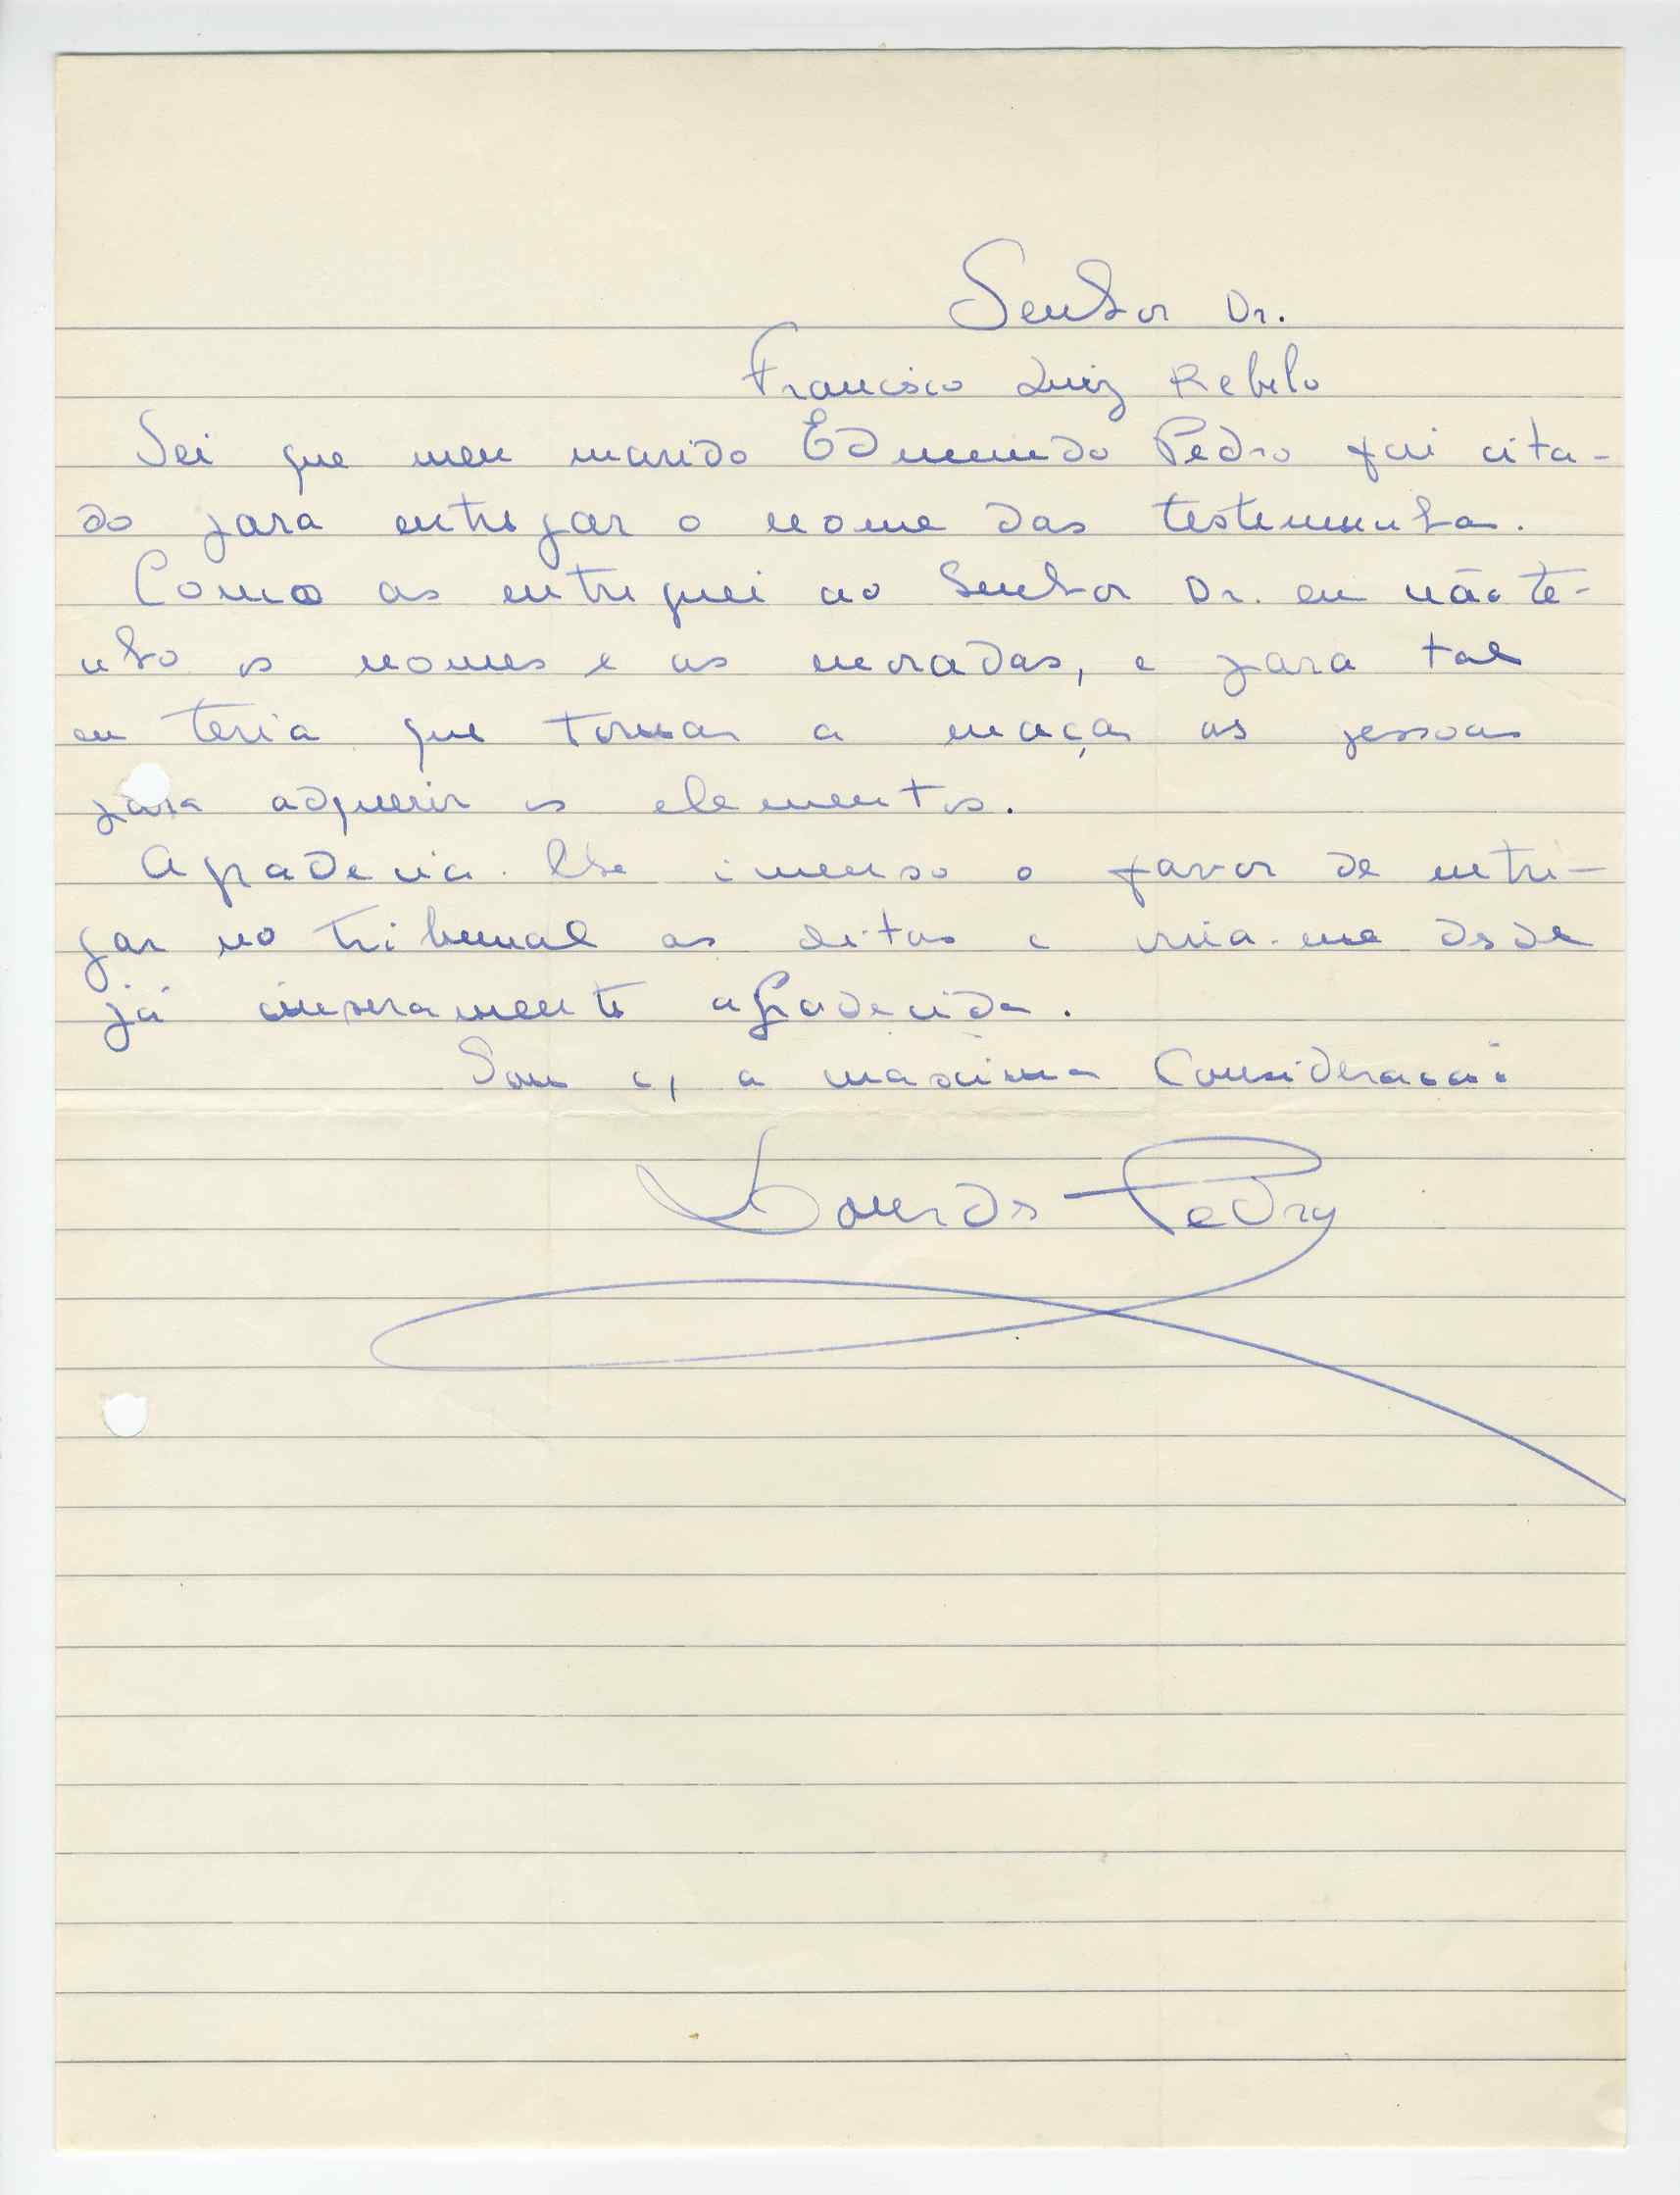 Senhor Dr.
Francisco Luiz Rebelo
Sei que meu marido Edmundo Pedro foi cita-
do para entregar o nome das testemunhas.
Como as entreguei ao Senhor Dr. eu não te-
nho os nomes e as moradas, e para tal
eu teria que tornar a maçar as pessoas
para adquerir os elementos.
Agradecia-lhe imenso o favor de entre-
gar no tribunal as ditas e creia-me desde
já sinceramente agradecida.
Sou c/ a maxima Consideração
Lourdes Pedro